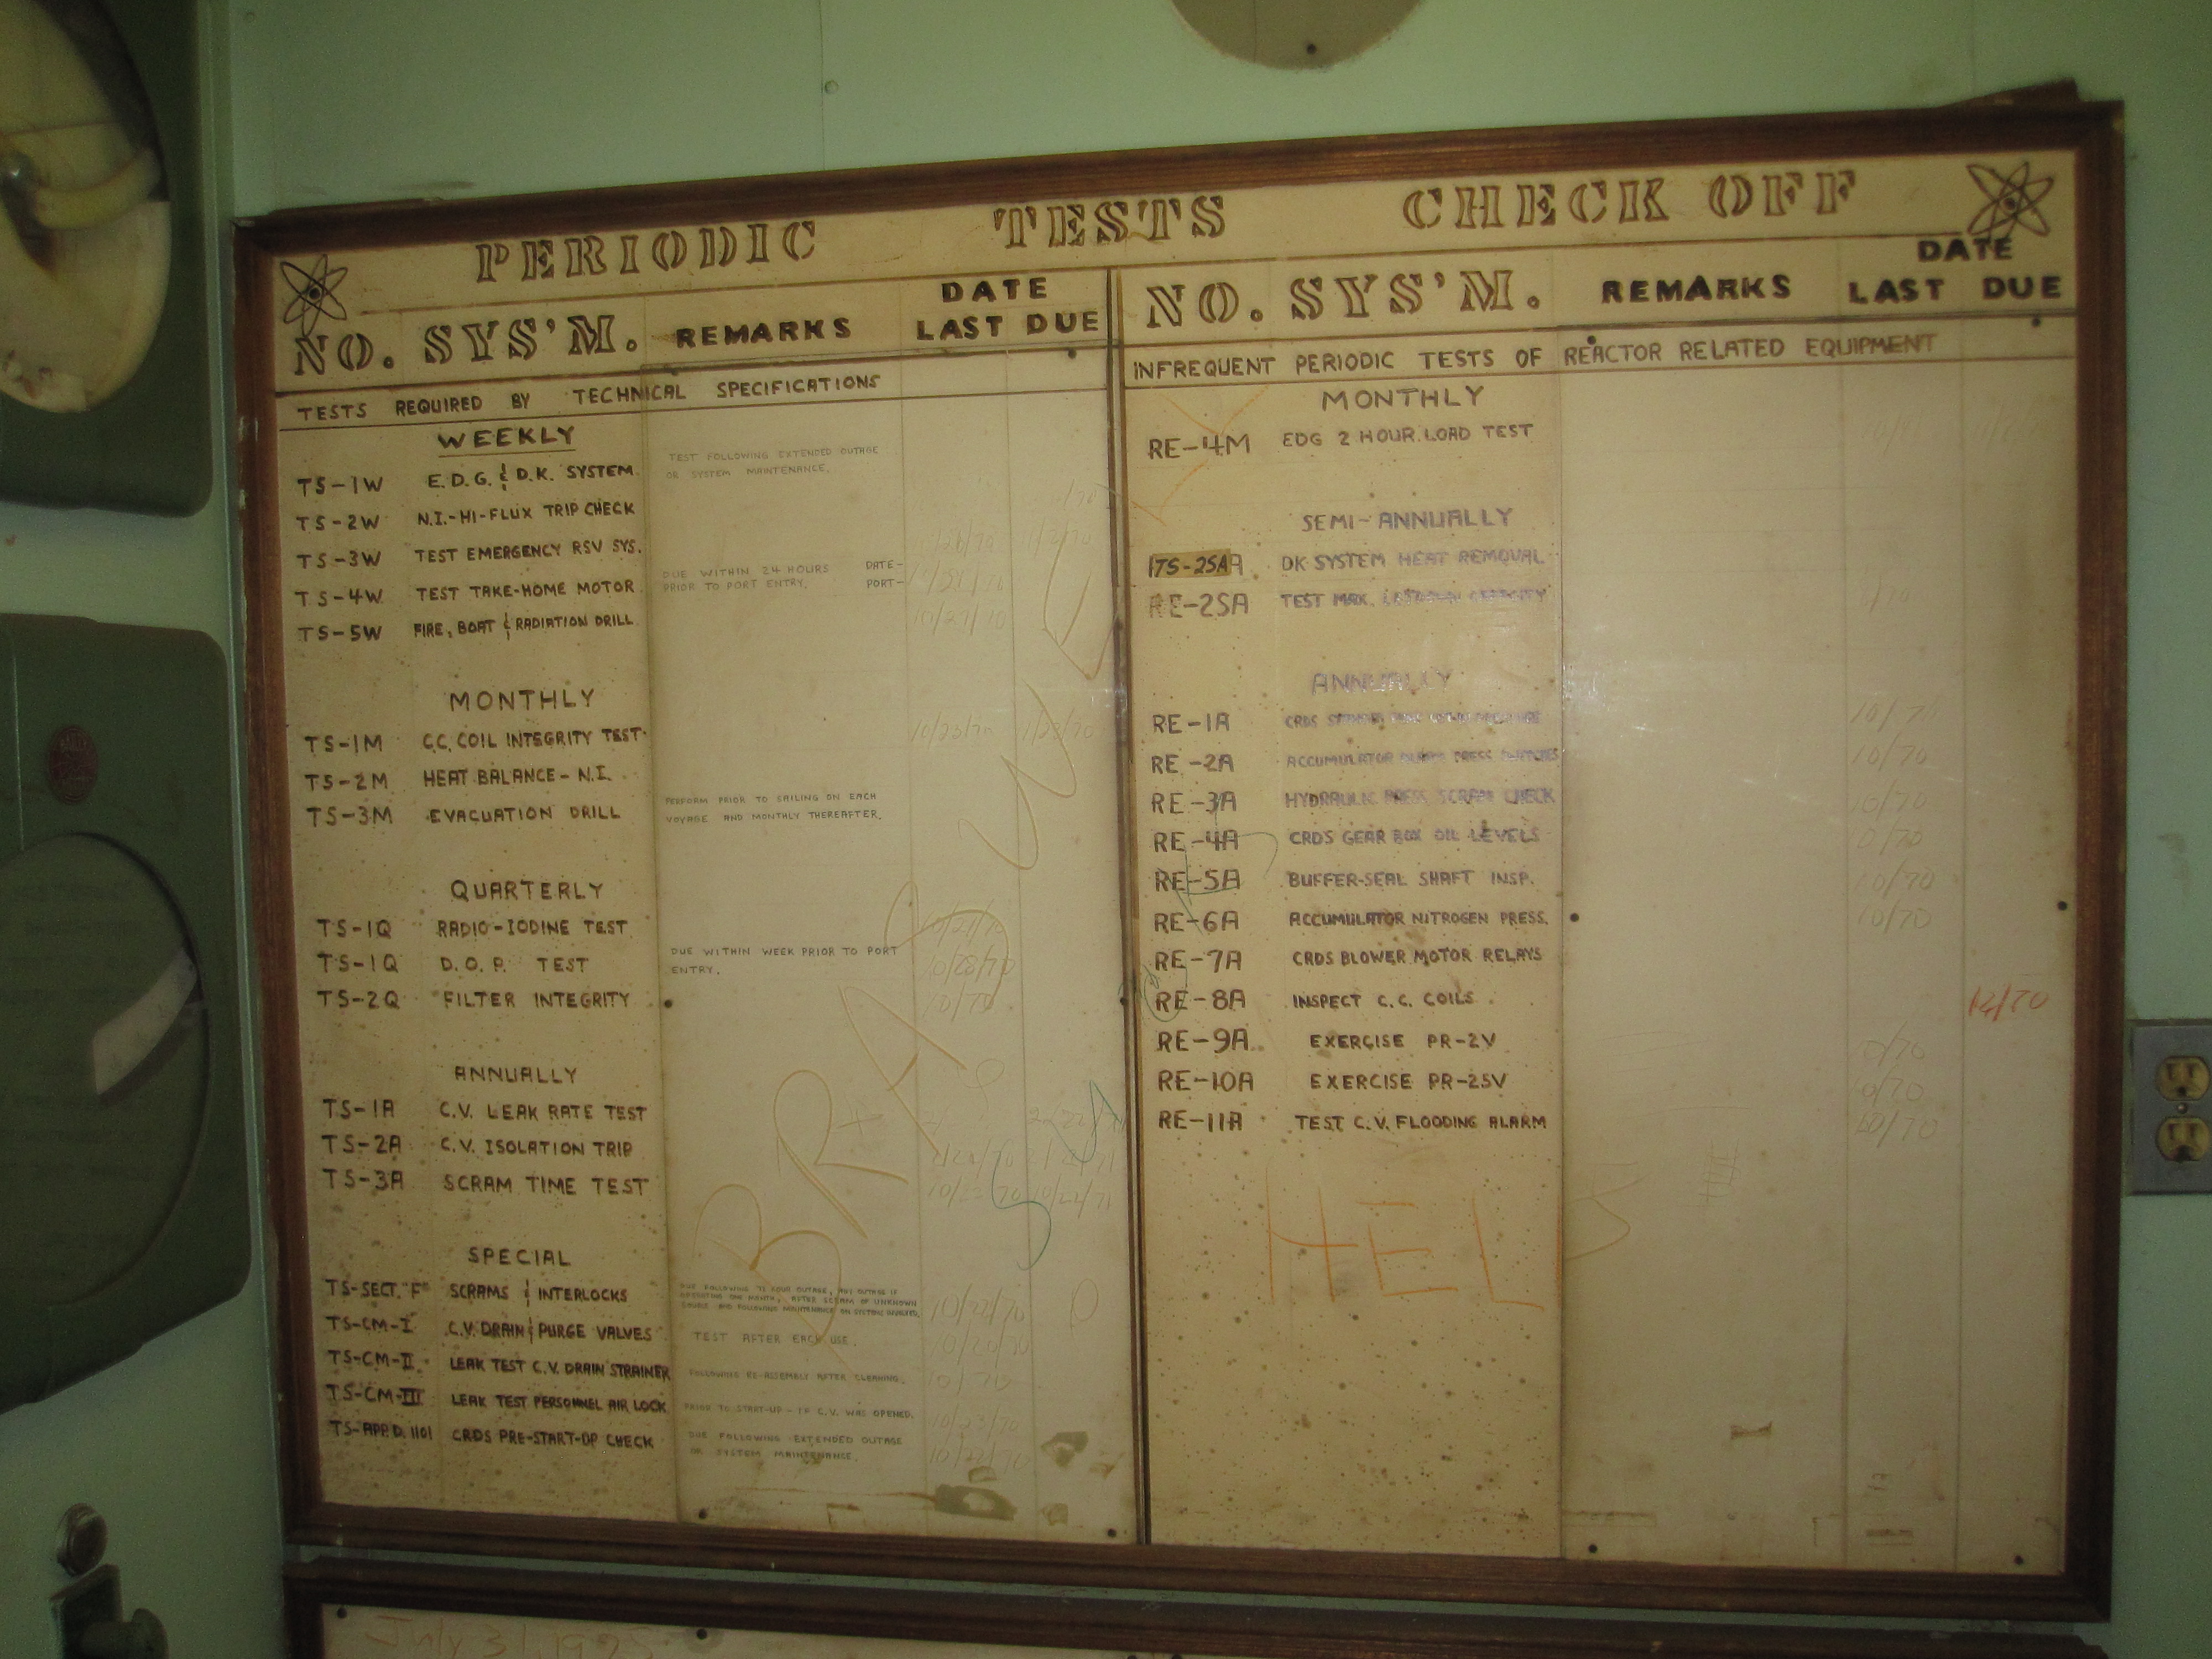 PERIODIC TESTS CHECK OFF
NO. SYS'M. REMARKS DATE
LAST DUE
TESTS REQUIRED BY TECHNICAL SPECIFICATIONS
WEEKLY
TS-1W E.D.G. & D.K. SYSTEM. TEST FOLLOWING EXTENDED OUTAGE
OR SYSTEM MAINTENANCE.
TS-2W N.I.-HI-FLUX TRIP CHECK
TS-3W TEST EMERGENCY RSV SYS.
TS-4W TEST TAKE-HOME MOTOR DUE WITHIN 24 HOURS DATE-
PRIOR TO PORT ENTRY. PORT-
TS-5W FIRE, BOAT & RADIATION DRILL 10/27/70
MONTHLY
TS-1M C.C. COIL INTEGRITY TEST 10/23/70 1/23/70
TS-2M HEAT BALANCE-N.I.
TS-3M EVACUATION DRILL PERFORM PRIOR TO SAILING ON EACH
VOYAGE AND MONTHLY THEREAFTER.
QUARTERLY
TS-1Q RADIO-IODINE TEST
TS-1Q D.O.P. TEST DUE WITHIN WEEK PRIOR TO PORT
ENTRY. 10/28/70
TS-2Q FILTER INTEGRITY 10/70
ANNUALLY
TS-1A C.V. LEAK RATE TEST
TS-2A C.V. ISOLATION TRIP
TS-3A SCRAM TIME TEST 10/22/70 10/22/71
SPECIAL
TS-SECT. "F" SCRAMS & INTERLOCKS DUE FOLLOWING 72 HOUR OUTAGE, ANY OUTAGE IF
OPERATING ONE MONTH, AFTER SCRAM OF UNKNOWN
SOURCE AND FOLLOWING MAINTENANCE ON SYSTEMS INVOLVED. 10/22/70
TS-CM-I C.V. DRAIN & PURGE VALVES TEST AFTER EACH USE. 10/20/70
TS-CM-II LEAK TEST C.V. DRAIN STRAINER FOLLOWING RE-ASSEMBLY AFTER CLEANING. 10/70
TS-CM-III LEAK TEST PERSONNEL AIR LOCK PRIOR TO START-UP - IF C.V. WAS OPENED. 10/23/70
TS-APP.D. 1101 CRDS PRE-START-UP CHECK DUE FOLLOWING EXTENDED OUTAGE
OR SYSTEM MAINTENANCE. 10/22/70
NO. SYS'M. REMARKS DATE
LAST DUE
INFREQUENT PERIODIC TESTS OF REACTOR RELATED EQUIPMENT
MONTHLY
RE-4M EDG 2 HOUR LOAD TEST
SEMI-ANNUALLY
TS-2SA DK SYSTEM HEAT REMOVAL
RE-2SA TEST MAX. LETDOWN CAPACITY
ANNUALLY
RE-1A CRDS 10/7
RE-2A ACCUMULATOR PRESS SWITCHES 10/70
RE-3A HYDRAULIC PRESS SCRAM CHECK 10/70
RE-4A CRDS GEAR BOX OIL LEVELS 10/70
RE-5A BUFFER-SEAL SHAFT INSP. 10/70
RE-6A ACCUMULATOR NITROGEN PRESS. 10/70
RE-7A CRDS BLOWER MOTOR RELAYS
RE-8A INSPECT C.C. COILS 12/70
RE-9A EXERCISE PR-2V 10/70
RE-10A EXERCISE PR-25V 10/70
RE-11A TEST C.V. FLOODING ALARM 10/70
HEL